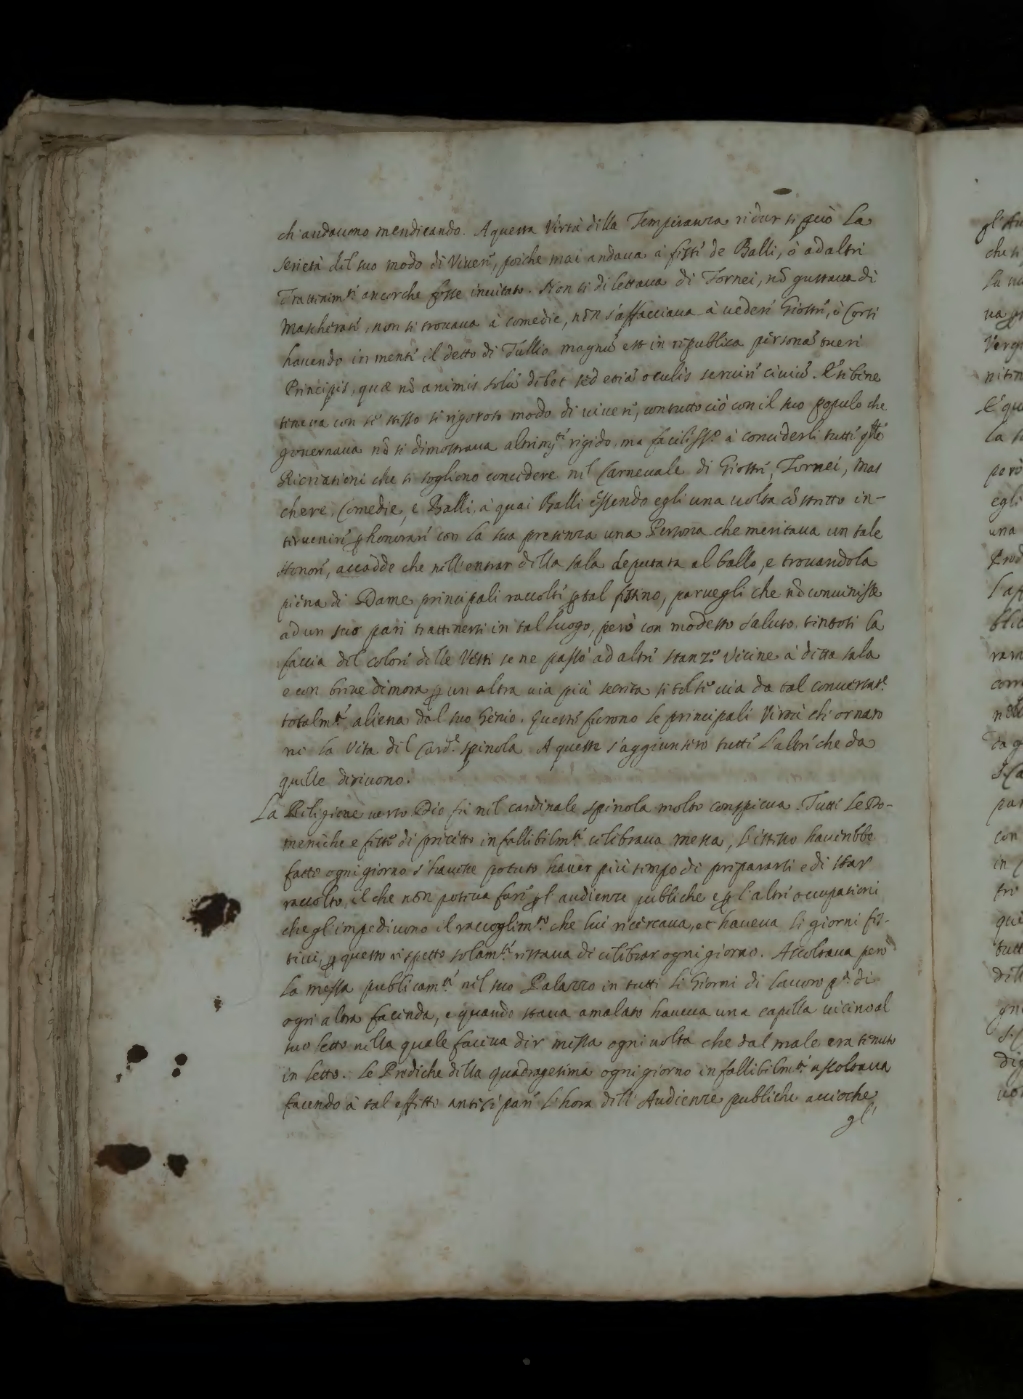 ch'andauono mendicando. A questa Virtù della Temperanza ridur si può La
serietà del suo modo di Viuere, poiche mai andaua à feste de Balli, ò ad altri
Trattenim.ti ancorche fosse inuitato. Non si dilettaua di Tornei, nõ gustaua di
Mascherate, non si trouaua à comedie, non s'affacciaua à uedere Giostre, ò Corsi
hauendo in mente il detto di Tullio magnũ est in republica personã tueri
Principis, quæ nõ animis solũ debet sed etiã oculis seruire ciuiũ. E se bene
teneua con se stesso si rigoroso modo di uiuere, con tutto ciò con il suo Populo che
gouernaua nõ si dimostraua altrim.te rigido, ma facilissº à concederli tutte q.lle
Ricreationi che si sogliono concedere nel Carneuale di Giostre, Tornei, Mas
chere, Comedie, e Balli, à quai Balli essendo egli una uolta cõstretto in-
teruenire p honorare con La sua presenza una Persona che meritaua un tale
Honore, accadde che nell'entrar della sala deputata al ballo, e trouandola
piena di Dame principali raccolte p tal festino, paruegli che nõ conueniße
ad un suo pari trattenersi in tal luogo, però con modesto saluto, tintosi la
faccia del colore delle Vesti se ne passò ad altre stanze Vicine à detta sala
e con breue dimora p un altra uia più secreta si tolse uia da tal conuersat.e
totalm.te aliena dal suo Genio. Queste furono Le principali Virtù che ornaro
no La Vita del Card.e Spinola. A queste s'aggiunsero tutte L'altre che da
quelle deriuono.
La Religione uerso Dio fù nel cardinale Spinola molto conspicua. Tutte Le Do-
meniche e feste di precetto infallibilm.te celebraua messa, L'istesso hauerebbe
fatto ogni giorno s'hauesse potuto hauer più tempo di prepararsi e di star
raccolto, il che non poteua fare p l'audienze publiche e p l'altre occupationi
che gl'impediuono il raccoglim.to che lui ricercaua, et haueua li giorni fes-
tiui, p questo rispetto solam.te restaua di celebrar ogni giorno. Ascoltaua però
La messa publicam.te nel suo Palazzo in tutti Li Giorni di Lauoro p.a di
ogni altra facenda, e quando staua amalato haueua una capella uicino al
suo letto nella quale faceua dir messa ogni uolta che dal male era tenuto
in letto. Le Prediche della quadragesima ogni giorno infallibilm.te ascoltaua
facendo à tal effetto anticipare L'hora dell'Audienze publiche accioche
gl'